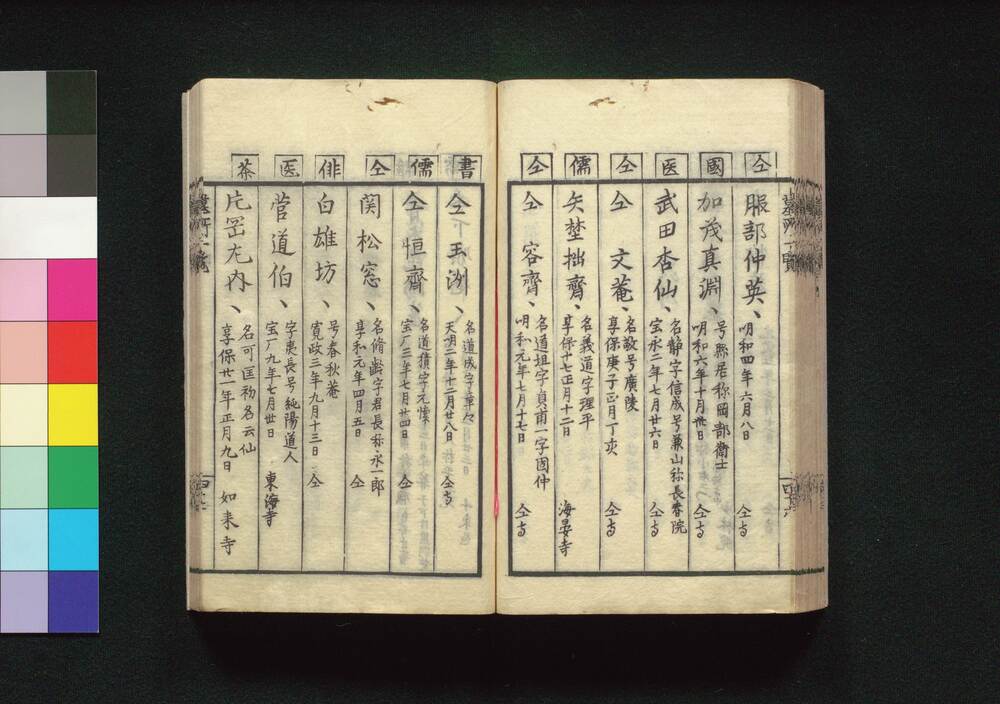 仝
服部仲英、
明和四年六月八日
仝寺
國
加茂真淵、
号縣居称岡部衛士
明和六年十月卅日
仝寺
医
武田杏仙、
名静字信成号兼山称長春院
宝永二年七月廿六日
仝寺
仝
仝 文菴、
名敬号廣陵
享保庚子正月丁亥
仝寺
儒
矢埜拙齊、
名義道字理平
享保十七正月十二日
海晏寺
仝
仝 容齊、
名道垣字貞甫一字固仲
明和元年七月十七日
仝寺
書
仝 玉洲、
名道成字章々
天明二年十二月廿八日
仝寺
儒
仝 恒齊、
名道積字元懐
宝厂三年七月廿四日
仝
仝
関松窓、
名脩齢字君長称永一郎
享和元年四月五日
仝
俳
白雄坊、
号春秋菴
寛政三年九月十三日
仝
医
菅道伯、
字夷長号純陽道人
宝厂九年七月卅日
東海寺
茶
片岡尢内、
名可匡称名云仙
享保廿一年正月九日
如来寺